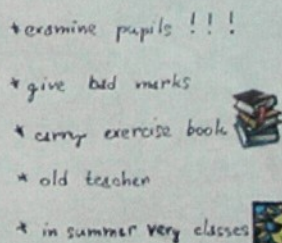 * examine pupils !!!
* give bad marks
* carry exercise book
* old teacher
* in summer very classes